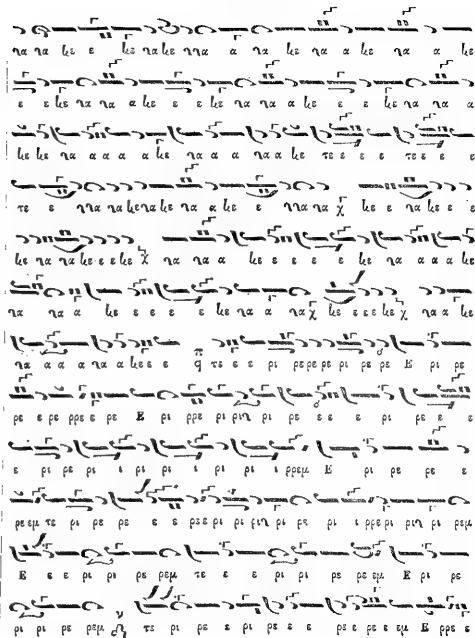 να να κε ε κε να κε να να α να κε να να α κε
ε ε κε να να α κε ε ε κε να να α κε ε ε κε να να α
κε κε να α α α α κε να α α να α κε τε ε ε ε τε ε ε ε
τε ε να να να κε να κε να α κε ε να να χ κε ε να κε ε ε
κε να να κε ε ε κε χ να α α κε ε ε ε ε κε να α α α κε
να να α κε ε ε ε κε να α να χ κε ε ε κε χ να α κε
να α α α α κε ε ε π q τε ε ε ρι ρε ρε ρε ρι ρε ρε Ε ρι ρε
ρε ε ρε ρρε ε ρε Ε ρι ρρε ρι ριν ρι ρε ε ε ε ρι ρε ε ε
ε ρι ρε ρι ι ρι ρι ι ρι ρι ι ρι ρρεμ Ε ρι ρε ε
ρε εμ τε ρι ρε ρε ε ε ρε ε ρι ρι ριν ρι ρι ι ρρε ρι ριν ρι ρεμ
Ε ε ε ρι ρι ρε ρεμ τε ε ε ρι ρι ρε ρε εμ Ε ρι ρε
ρι ρι ρε ρεμ τε ρι ρε ε ρι ε ε ρε ε ρε εμ Ε ρρε ε